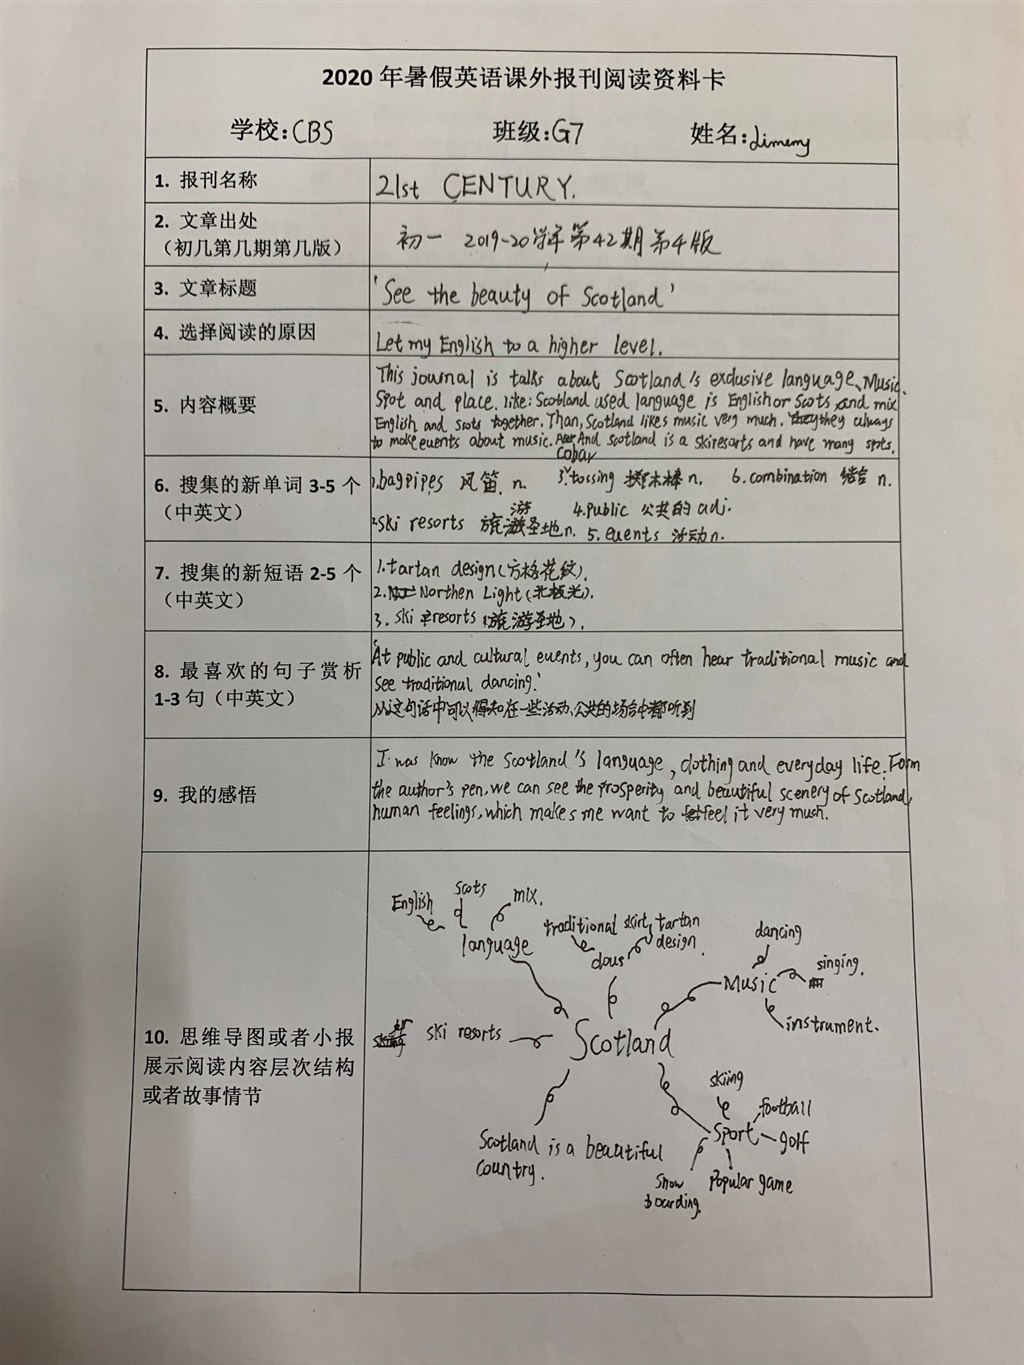 2020 年暑假英语课外报刊阅读资料卡
学校:CBS 班级:G7 姓名:
1. 报刊名称
21st CENTURY.
2. 文章出处
（初几第几期第几版）
初一 2019-20学年第42期第4版
3. 文章标题
'See the beauty of Scotland'
4. 选择阅读的原因
Let my English to a higher level.
5. 内容概要
This journal is talks about Scotland's exclusive language、Music、
Spot and place. like: Scotland used language is English or Scots and mix
English and scots together. Than, Scotland likes music very much. they always
to make events about music. And scotland is a skiresorts and have many spts.
6. 搜集的新单词 3-5 个
（中英文）
1.bagpipes 风笛 n. 3.tossing 木棒 n. 6.combination 结合 n.
2.ski resorts 旅游圣地n. 4.Public 公共的 adj.
5. events 活动n.
7. 搜集的新短语 2-5 个
（中英文）
1.tartan design(方格花纹).
2. Northen Light(北极光).
3. ski resorts (旅游圣地).
8. 最喜欢的句子赏析
1-3 句（中英文）
'At public and cultural events, you can often hear traditional music and
see traditional dancing.'
从这句话中可以得知在一些活动、公共的场合中都听到
9. 我的感悟
I was know the Scotland's language, clothing and everyday life. Form
the author's pen, we can see the prosperity and beautiful scenery of Scotland,
human feelings, which makes me want to feel it very much.
10. 思维导图或者小报
展示阅读内容层次结构
或者故事情节
English
Scots
mix.
language
traditional skirt
tartan
design.
clous
dancing
singing.
Music
instrument.
ski resorts
Scotland
Scotland is a beautiful
country.
skiing
football
Sport
golf
Popular game
Snow
boarding.